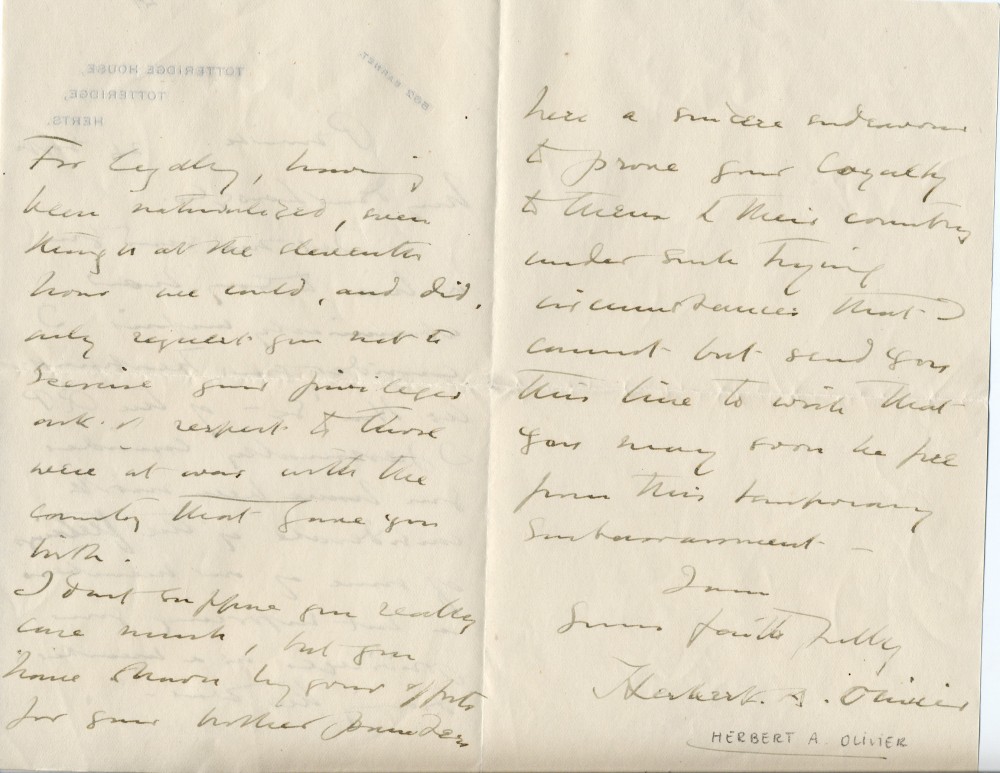 TOTTERIDGE HOUSE,
TOTTERIDGE,
HERTS.
BARNET.
For loyalty, having
been naturalized, even
though at the eleventh
hour we could, and did,
only request you not to
exercise your privileges
out of respect to those
were at war with the
country that gave you
birth.
I don't suppose you really
care much, but you
have shown by your efforts
for your brother painters
here a sincere endeavour
to prove your loyalty
to them & their country
under such trying
circumstances that I
cannot but send you
this line to wish that
you may soon be free
from this temporary
embarrassment –
I am
Yours faithfully
Herbert. A. Olivier
HERBERT A. OLIVIER